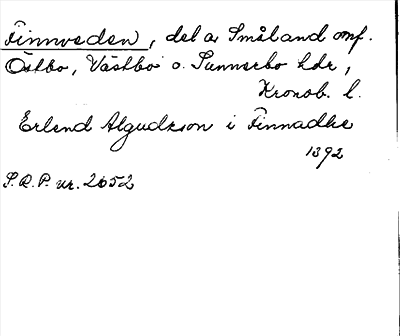 Finnveden, del av Småland omf.
Östbo, Västbo o. Sunnerbo hdr,
Kronob. l.
Erlend Algudzson i Finnadhe
1392
S.R.P. nr. 2652